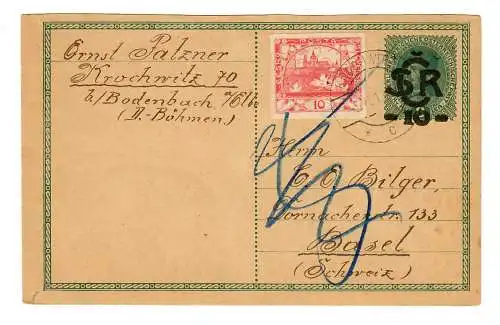 Ernst Palzner
Krochwitz 70
b/Bodenbach a/Elbe
(D.-Böhmen.)
POŠTA
10
ČSR
-10-
c
Herrn
E. E. Bilger,
Dornacherstr. 133
Basel
(Schweiz)